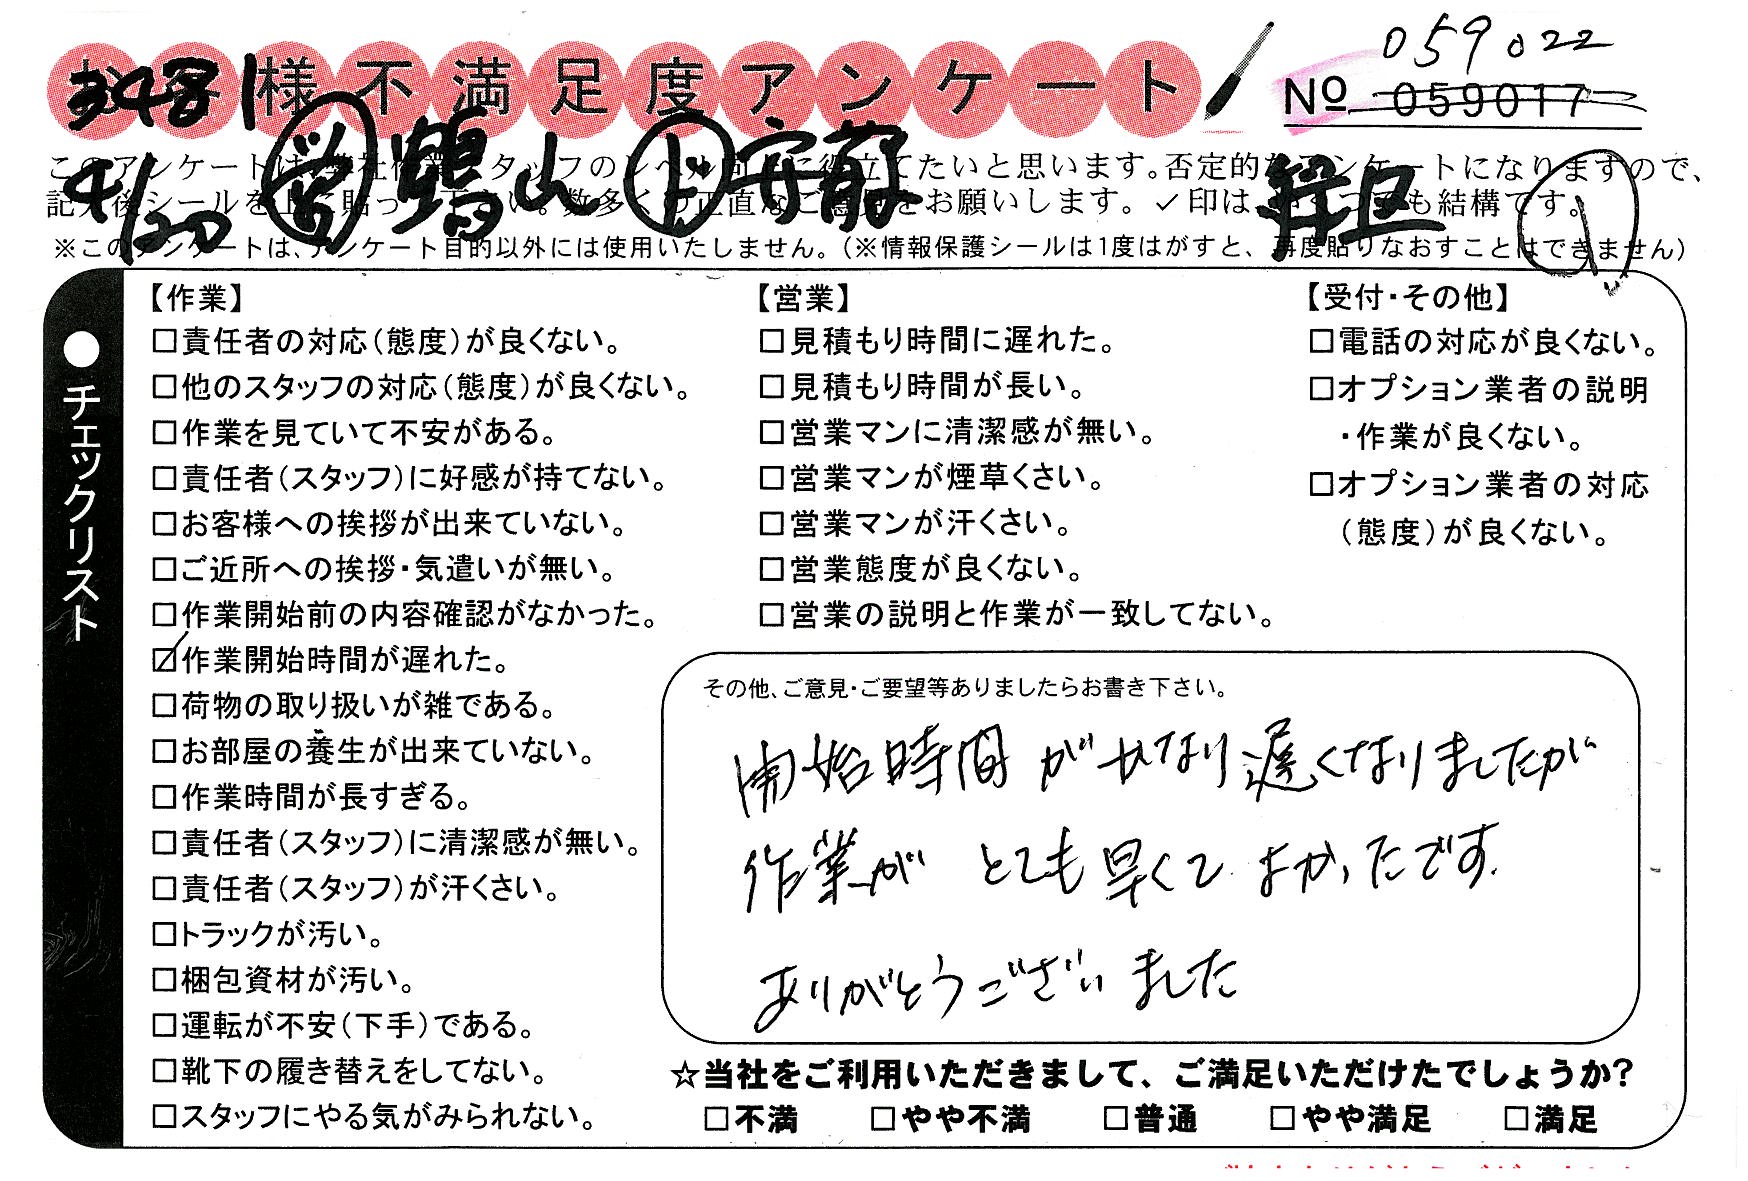 お客様不満足度アンケート
059022
No 059017
34781
4/20 営 鶴山 上 安前 荘区 1
このアンケートは、弊社作業スタッフのレベル向上に役立てたいと思います。否定的なアンケートになりますので、
記入後シールを上に貼って下さい。数多くの正直なご意見をお願いします。✓印は、いくつでも結構です。
※このアンケートは、アンケート目的以外には使用いたしません。(※情報保護シールは1度はがすと、再度貼りなおすことはできません)
●チェックリスト
【作業】
□責任者の対応(態度)が良くない。
□他のスタッフの対応(態度)が良くない。
□作業を見ていて不安がある。
□責任者(スタッフ)に好感が持てない。
□お客様への挨拶が出来ていない。
□ご近所への挨拶・気遣いが無い。
□作業開始前の内容確認がなかった。
☑作業開始時間が遅れた。
□荷物の取り扱いが雑である。
□お部屋の養生が出来ていない。
□作業時間が長すぎる。
□責任者(スタッフ)に清潔感が無い。
□責任者(スタッフ)が汗くさい。
□トラックが汚い。
□梱包資材が汚い。
□運転が不安(下手)である。
□靴下の履き替えをしてない。
□スタッフにやる気がみられない。
【営業】
□見積もり時間に遅れた。
□見積もり時間が長い。
□営業マンに清潔感が無い。
□営業マンが煙草くさい。
□営業マンが汗くさい。
□営業態度が良くない。
□営業の説明と作業が一致してない。
【受付・その他】
□電話の対応が良くない。
□オプション業者の説明
・作業が良くない。
□オプション業者の対応
(態度)が良くない。
その他、ご意見・ご要望等ありましたらお書き下さい。
開始時間がかなり遅くなりましたが
作業がとても早くてよかったです。
ありがとうございました
☆当社をご利用いただきまして、ご満足いただけたでしょうか?
□不満 □やや不満 □普通 □やや満足 □満足